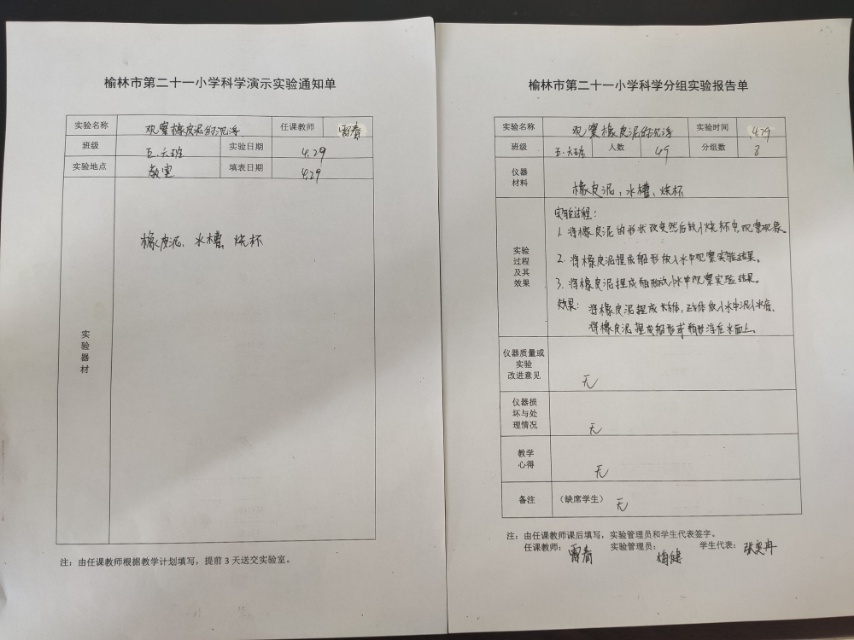 榆林市第二十一小学科学演示实验通知单
实验名称 观察橡皮泥的沉浮 任课教师 雷春
班级 五.六班 实验日期 4.29
实验地点 教室 填表日期 4.29
实验器材
橡皮泥、水槽、烧杯
注：由任课教师根据教学计划填写，提前 3 天送交实验室。
榆林市第二十一小学科学分组实验报告单
实验名称 观察橡皮泥的沉浮 实验时间 4.29
班级 五.六班 人数 49 分组数 8
仪器材料 橡皮泥，水槽、烧杯
实验过程及其效果
实验过程：
1. 将橡皮泥的形状改变然后放入烧杯中观察现象。
2. 将橡皮泥捏成船形放入水中观察实验结果。
3. 将橡皮泥捏成 放入水中观察实验结果。
效果： 将橡皮泥捏成 放入水中沉入水底，
将橡皮泥捏成船形或 浮在水面上。
仪器质量或实验改进意见 无
仪器损坏与处理情况 无
教学心得 无
备注 （缺席学生） 无
注：由任课教师课后填写，实验管理员和学生代表签字。
任课教师： 雷春 实验管理员： 学生代表： 张奕冉